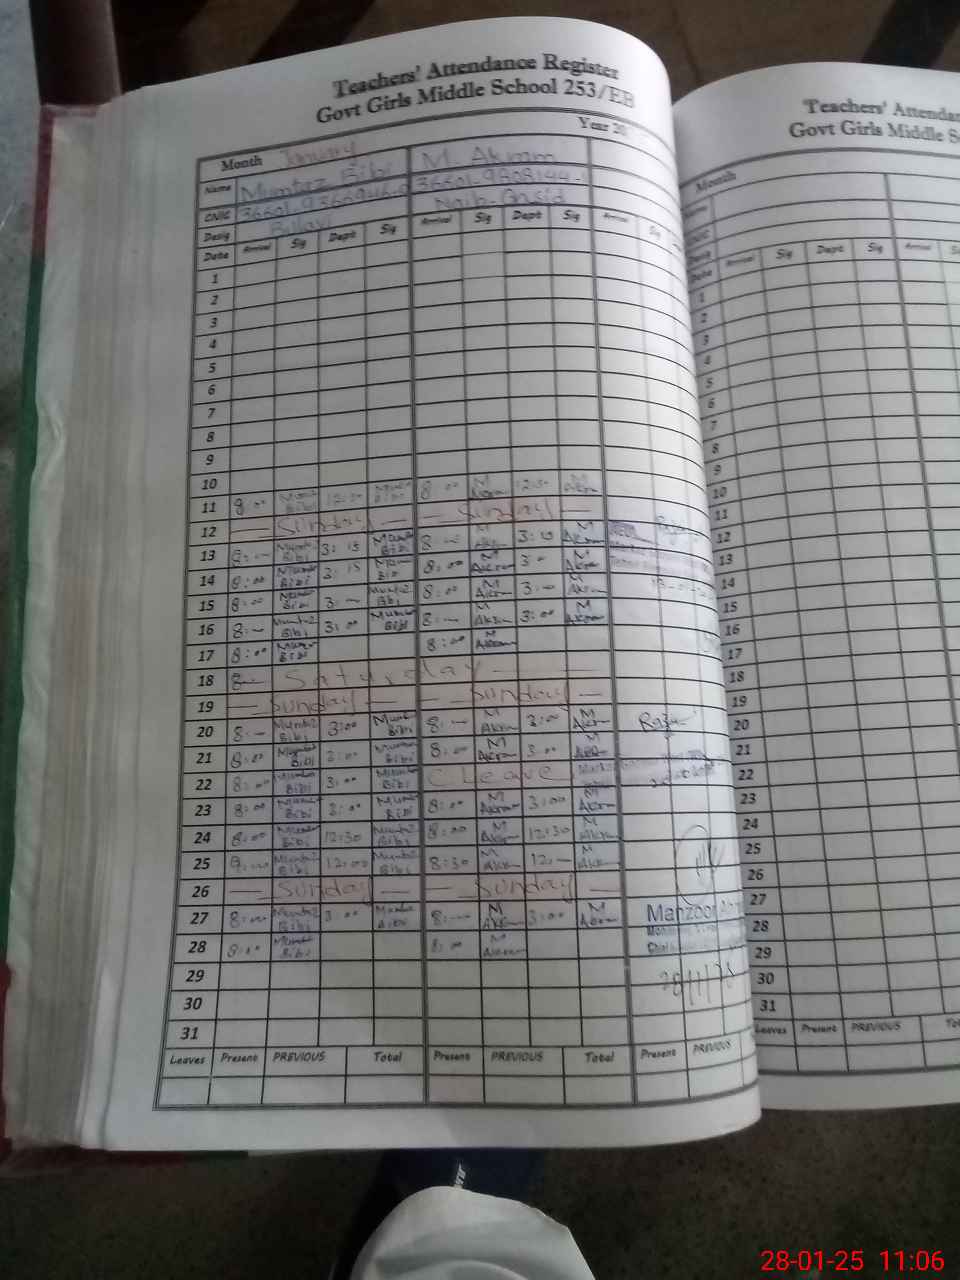 Teachers' Attendance Register
Govt Girls Middle School 253/EB
Year 20
Month January
Name Mumtaz Bibi M. Akram
CNIC 36601-9366946-0 36601-9808144-
Desig Naib-Qasid
Date Arrival Sig Deptt Sig Arrival Sig Deptt Sig Arrival Sig
1
2
3
4
5
6
7
8
9
10
11 8:00 Mumtaz Bibi 12:30 Mumtaz Bibi 8:00 M Akram 12:30 M Akram
12 — Sunday — — Sunday —
13 8:— Mumtaz Bibi 3:15 Mumtaz Bibi 8:— M Akram 3:15 M Akram
14 8:00 Mumtaz Bibi 3:15 Mumtaz Bibi 8:00 M Akram 3:00 M Akram
15 8:00 Mumtaz Bibi 3:— Mumtaz Bibi 8:00 M Akram 3:— M Akram
16 8:— Mumtaz Bibi 3:00 Mumtaz Bibi 8:— M Akram 3:00 M Akram
17 8:00 Mumtaz Bibi 8:00 M Akram
18 8:— Saturday —
19 — Sunday — — Sunday —
20 8:— Mumtaz Bibi 3:00 Mumtaz Bibi 8:— M Akram 3:00 M Akram
21 8:00 Mumtaz Bibi 3:00 Mumtaz Bibi 8:00 M Akram 3:00 M Akram
22 8:00 Mumtaz Bibi 3:00 Mumtaz Bibi C. Leave
23 8:00 Mumtaz Bibi 3:00 Mumtaz Bibi 8:00 M Akram 3:00 M Akram
24 8:00 Mumtaz Bibi 12:30 Mumtaz Bibi 8:00 M Akram 12:30 M Akram
25 9:00 Mumtaz Bibi 12:00 Mumtaz Bibi 8:30 M Akram 12:— M Akram
26 — Sunday — — Sunday —
27 8:— Mumtaz Bibi 3:00 Mumtaz Bibi 8:— M Akram 3:00 M Akram Manzoor
28 8:00 Mumtaz Bibi 8:00 M Akram
29 28/1/25
30
31
Leaves Present PREVIOUS Total Present PREVIOUS Total Present PREVIOUS
Teachers' Attendan
Govt Girls Middle S
Month
Name
CNIC
Desig
Date Arrival Sig Deptt Sig Arrival
1
2
3
4
5
6
7
8
9
10
11
12
13
14
15
16
17
18
19
20
21
22
23
24
25
26
27
28
29
30
31
Leaves Present PREVIOUS Total Present PREVIOUS
28-01-25 11:06